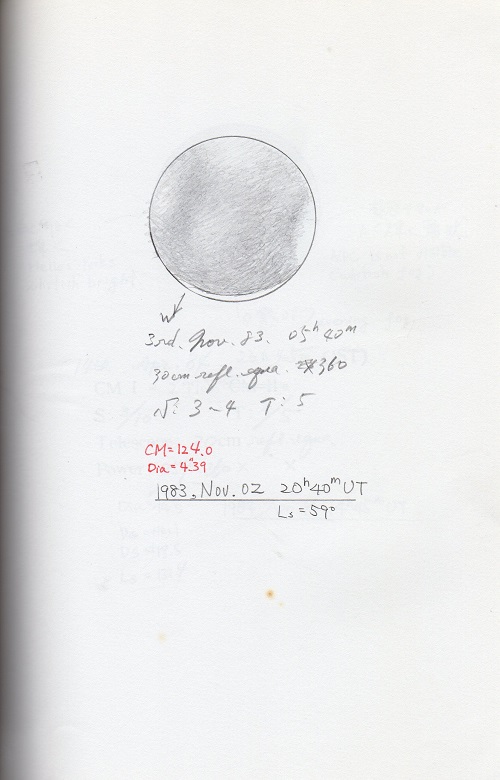 W
3rd. Nov. 83. 05h 40m
30cm refl. equa. 360
S: 3~4 T: 5
CM=124.0
Dia=4".39
1983, Nov. 02 20h40m UT
Ls=59°